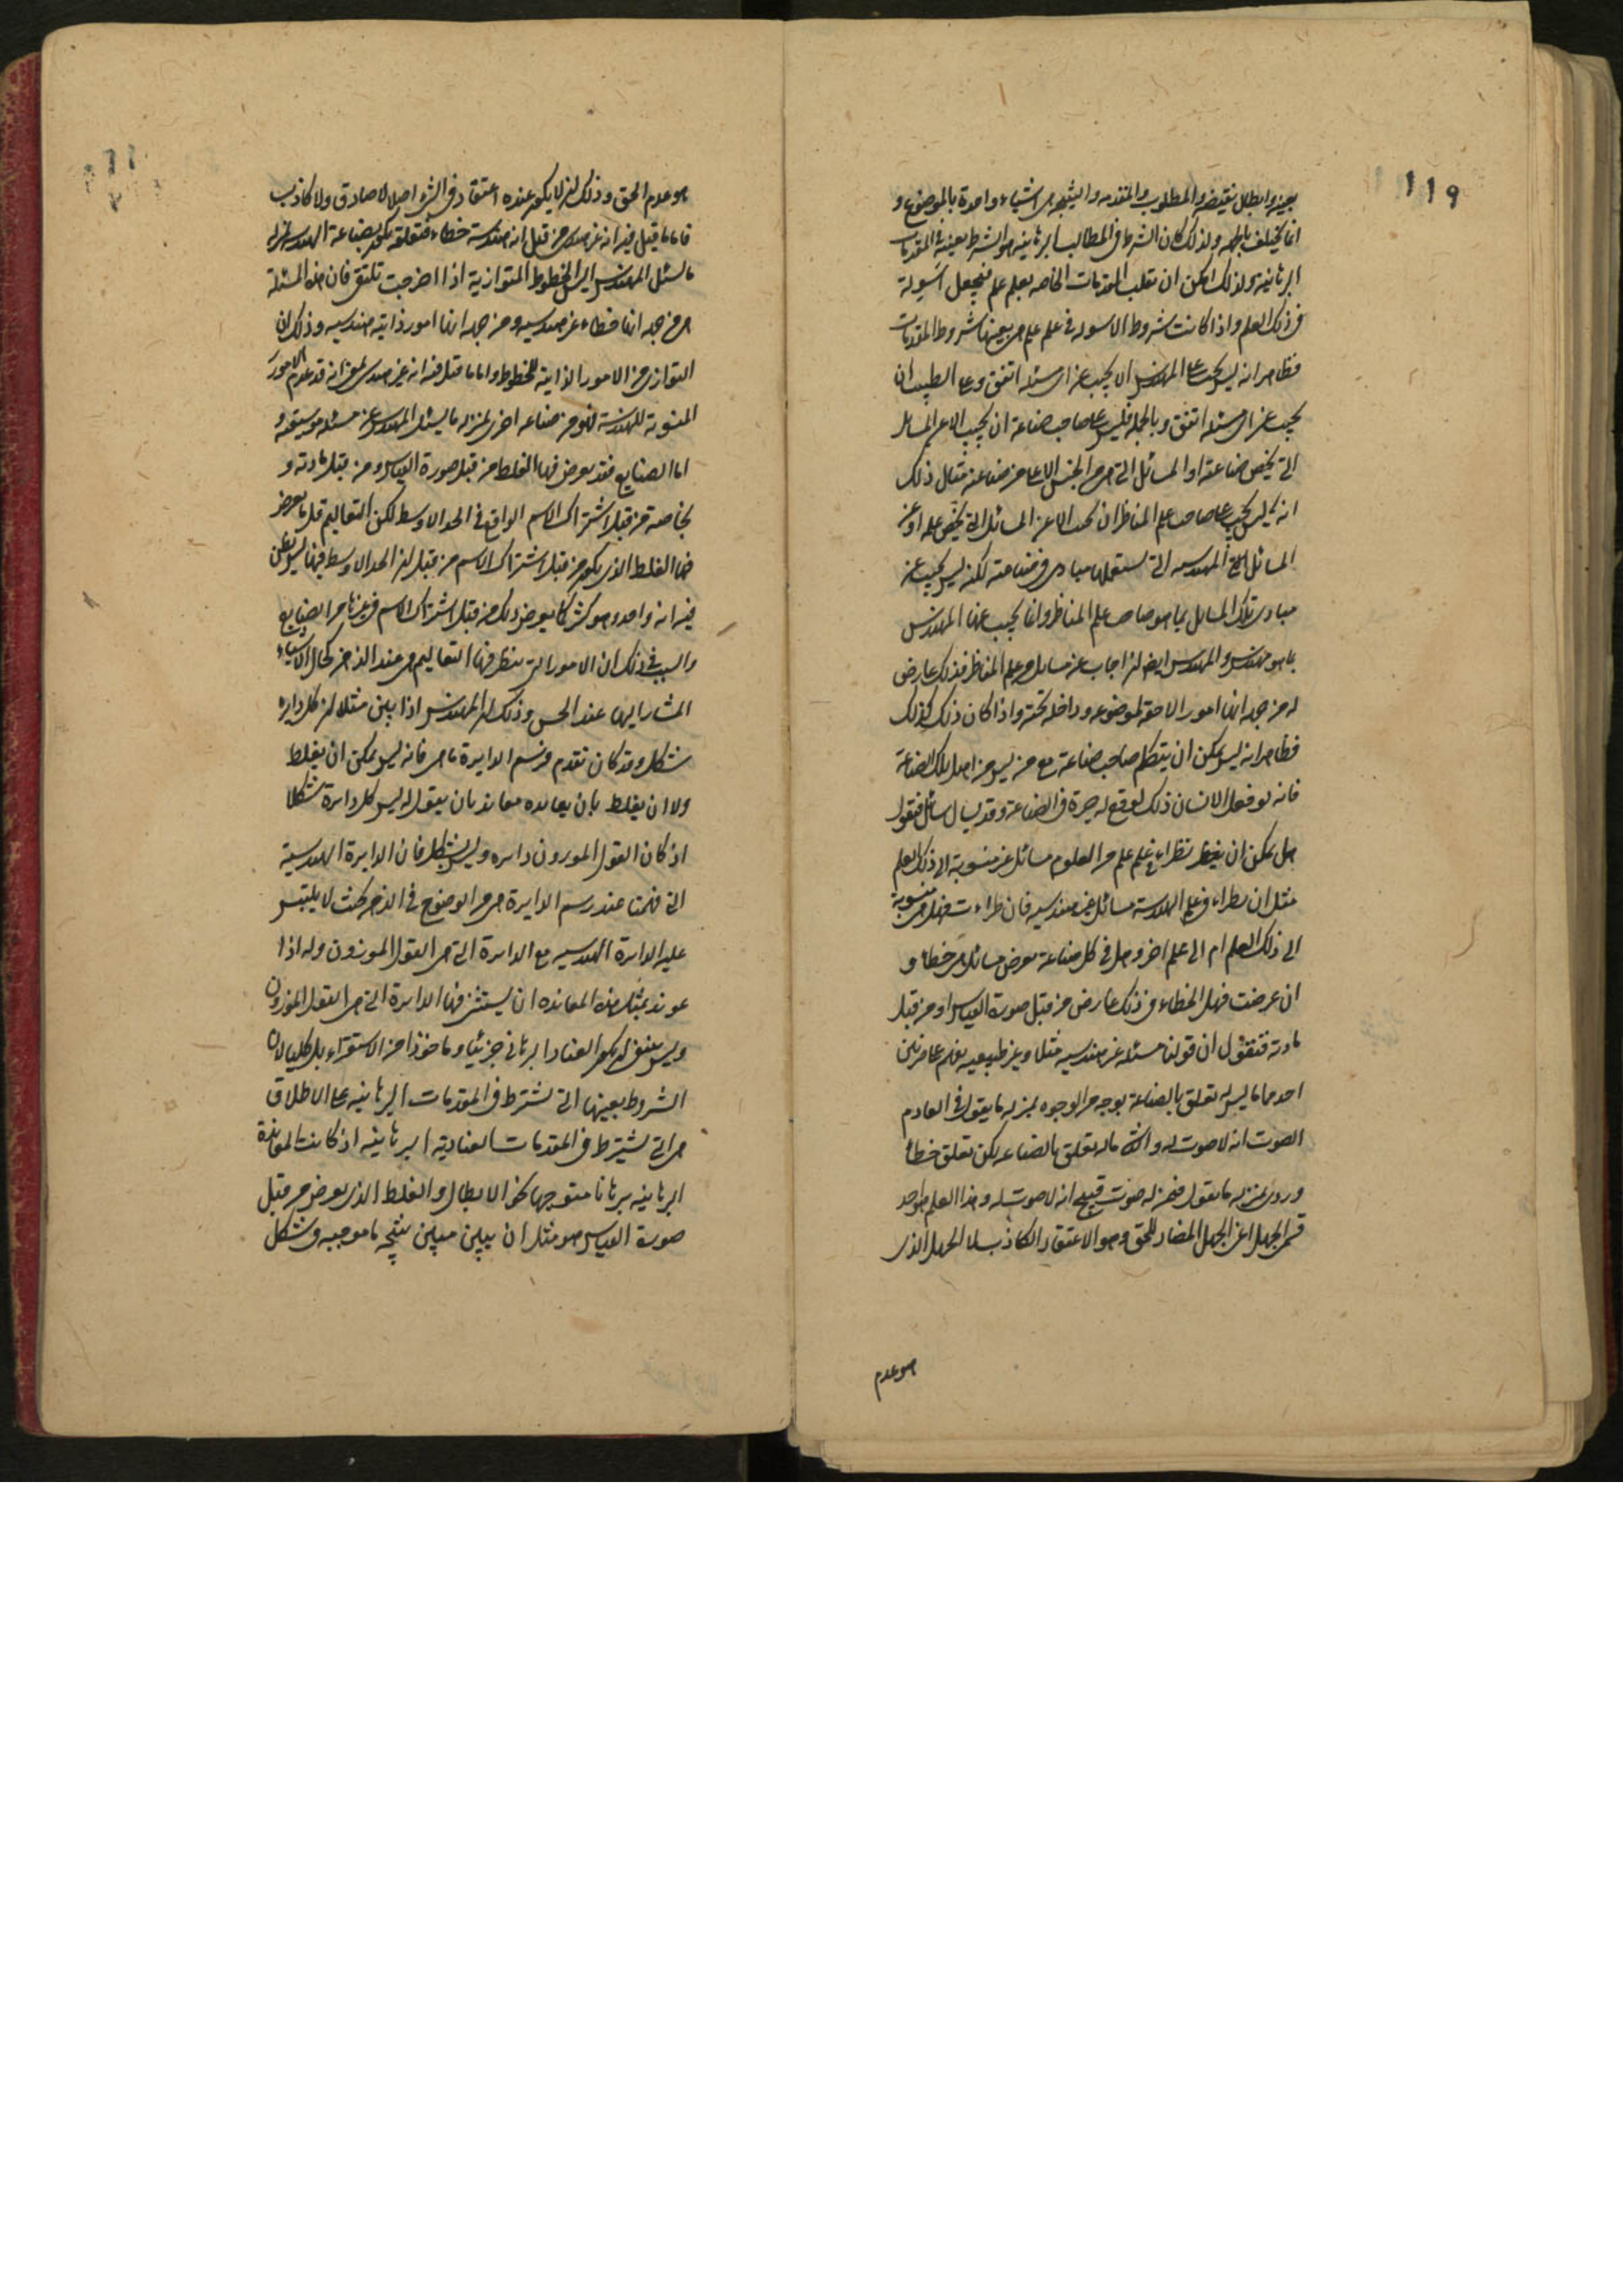 119
بعينه وابطال نقيضه والمطلوب والمقدمه والنتيجه هى اشياء واحدة بالموضوع و
انما تختلف بالجهه ولذلك كان الشرط فى المطالب البرهانيه هو الشرط بعينه فى المقدمات
البرهانيه ولذلك امكن ان تقلب المقدمات الخاصه بعلم علم فيجعل اسولة
فى ذلك العلم واذا كانت شروط الاسوله فى علم علم هى بعينها شروط المقدمات
فظاهر انه ليس يجب على المهندس ان يجيب عن اى مسئله اتفق وعلى الطبيب ان
يجيب عن اى مسئله اتفق وبالجمله فليس على صاحب صناعة ان يجيب الا عن المسائل
التى تخص صناعته او المسائل التى هى من الجنس الاعلى من صناعته مثال ذلك
انه ليس يجب على صاحب علم المناظر ان يجيب الا عن المسائل التى تخص علمه او عن
المسائل الهندسيه التى يستعملها مبادى فى صناعته لكنه ليس يجيب عن
مبادى تلك المسائل بما هو صاحب علم المناظر وانما يجيب عنها المهندس
بما هو مهندس والمهندس ايضا ان اجاب عن مسائل من علم المناظر فذلك عارض
له من جهه انها امور لاحقه لموضوعه وداخله تحته واذا كان ذلك كذلك
فظاهر انه ليس يمكن ان يتكلم صاحب صناعة مع من ليس من اهل تلك الصناعة
فانه لو فعل الانسان ذلك لوقع له حيرة فى الصناعة وقد يسال سائل فيقول
هل يمكن ان يطراء فى علم علم من العلوم مسائل غير منسوبة الى ذلك العلم
مثل ان يطراء فى علم الهندسة مسائل غير هندسيه فان طراءت فهل هى منسوبة
الى ذلك العلم ام الى علم اخر وهل فى كل صناعة يعرض مسائل هى خطاء و
ان عرضت فهل الخطاء فى ذلك عارض من قبل صورة القياس او من قبل
مادته فنقول ان قولنا مسئله غير هندسيه مثلا وغير طبيعيه يفهم على ضربين
احدهما ما ليس له تعلق بالصناعة بوجه من الوجوه بمنزله ما يقول فى العادم
الصوت انه لا صوت له والثانى ماله تعلق بالصناعه لكن تعلق خطأ
وردى بمنزله ما يقول فيمن له صوت قبيح انه لا صوت له وهذا العلم هو احد
قسمى الجهل اعنى الجهل المضاد للحق وهو الاعتقاد الكاذب لا الجهل الذى
هو عدم
هو عدم الحق وذلك ان لا يكون عنده اعتقاد فى الشى اصلا لا صادق ولا كاذب
فاما ما قيل فيه انه غير هندسى من قبل انه هندسة خطاء فتعلقه يكون بصناعة الهندسة بمنزله
ما يسئل المهندس اليس الخطوط المتوازية اذا اخرجت تلتقى فان هذه المسئلة
هى من جهه انها خطاء غير هندسيه ومن جهه انها امور ذاتيه هندسيه وذلك ان
التوازى من الامور الذاتية للخطوط واما ما قيل فيه انه غير هندسى بمعنى انه قد عدم الامور
المنسوبة للهندسة فهو من صناعه اخرى بمنزله ما يسئل المهندس عن مسئله موسيقيه و
اما الصنايع فقد يعرض فيها الغلط من قبل صورة القياس ومن قبل مادته و
بخاصة من قبل اشتراك الاسم الواقع فى الحد الاوسط لكن التعاليم قل ما يعرض
فيها الغلط الذى يكون من قبل اشتراك الاسم من قبل ان الحد الاوسط فيها ليس يظن
فيه انه واحد وهو كثير كما يعرض ذلك من قبل اشتراك الاسم فى غيرها من الصنايع
والسبب فى ذلك ان الامور التى ينظر فيها التعاليم هى عند الذهن كحال الاشياء
المشار اليها عند الحس وذلك ان المهندس اذا بين مثلا ان كل دايره
شكل وقد كان تقدم فرسم الدايرة ما هى فانه ليس يمكن ان يغلط
ولا ان يغلط بان يعانده معاند بان يقول له ليس كل دايرة شكلا
اذ كان القول الموزون دايره وليس بشكل فان الدايرة الهندسية
التى فهمنا عند رسم الدايرة هى من الوضوح فى الذهن بحيث لا يلتبس
عليه الدايرة الهندسيه مع الدايرة التى هى القول الموزون وله اذا
عوند بمثل هذه المعانده ان يستثنى فيها الدايرة التى هى القول الموزون
وليس ينبغى ان يكون العناد البرهانى جزئيا وماخوذا من الاستقراء بل كليا لان
الشروط بعينها التى تشترط فى المقدمات البرهانيه على الاطلاق
هى التى يشترط فى المقدمات العناديه البرهانيه اذ كانت المعاندة
البرهانيه برهانا متوجها نحو الابطال والغلط الذى يعرض من قبل
صورة القياس هو مثل ان يبين مبين نتيجه ما موجبه فى شكل